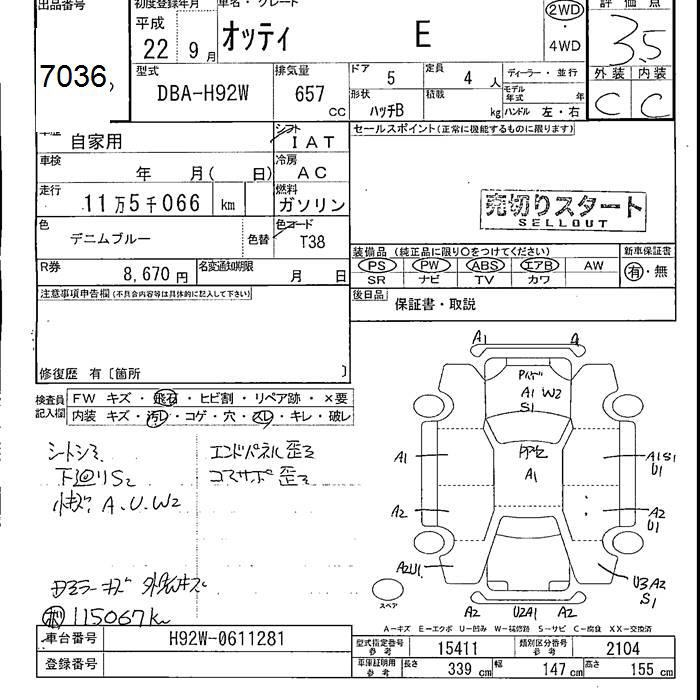 出品番号 初度登録年月 車名・グレード 評価点
平成 オッティ E 2WD 3.5
22年 9月 ・ 4WD
7036, 型式 排気量 ドア 5 定員 4人 ディーラー・並行 外装 内装
DBA-H92W 657cc 形状 ハッチB 積載 kg モデル年式 年 ハンドル 左・右 C C
車歴 自家用 シフト IAT セールスポイント(正常に機能するものに限ります)
車検 年 月( 日) 冷房 AC
走行 11万5千066 km 燃料 ガソリン 売切りスタート
SELLOUT
色 デニムブルー 色替 色コード T38
装備品 (純正品に限り○をつけてください) 新車保証書
R券 8,670円 名変通知期限 月 日 PS PW ABS エアB AW 有・無
SR ナビ TV カワ
注意事項申告欄(不具合内容等は具体的に記入して下さい) 後日品 保証書・取説
修復歴 有〔箇所 〕
検査員記入欄 FW キズ・飛石・ヒビ割・リペア跡・×要
内装 キズ・汚レ・コゲ・穴・スレ・キレ・破レ
シートシミ エンドパネル歪ミ
下廻りS2 コアサポ歪ミ
小キズ A.U.W2
115067km
A1 A
A1 W2
S1
A1
A1 A1 S1
U1
A2 A2
U1
A2U1 U3A2
S1
スペア A2 U2A1 A2
A−キズ E−エクボ U−凹み W−補修跡 S−サビ C−腐食 XX−交換済
車台番号 H92W-0611281 型式指定番号 参考 15411 類別区分番号 参考 2104
登録番号 車庫証明用 参考 長さ 339cm 幅 147cm 高さ 155cm